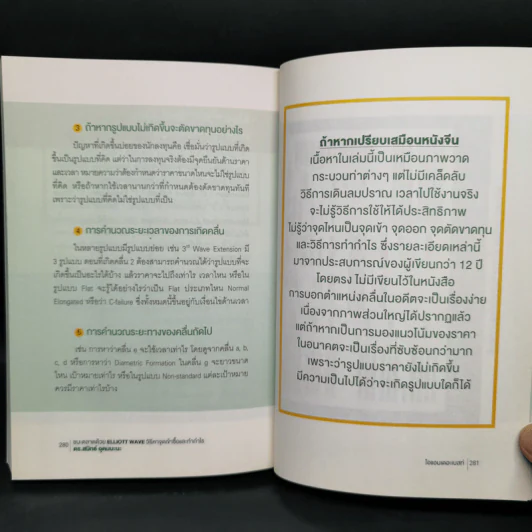 3 ถ้าหากรูปแบบไม่เกิดขึ้นจะตัดขาดทุนอย่างไร
ปัญหาที่เกิดขึ้นบ่อยของนักลงทุนคือ เชื่อมั่นว่ารูปแบบที่เกิด
ขึ้นเป็นรูปแบบที่คิด แต่ว่าในการลงทุนจริงต้องมีจุดยืนยันด้านราคา
และเวลา หมายความว่าต้องกำหนดว่าราคาขนาดไหนจะไม่ใช่รูปแบบ
ที่คิด หรือถ้าหากใช้เวลานานกว่าที่กำหนดต้องตัดขาดทุนทันที
เพราะว่ารูปแบบที่คิดไม่ใช่รูปแบบที่เป็น
4 การคำนวณระยะเวลาของการเกิดคลื่น
ในหลายรูปแบบมีรูปแบบย่อย เช่น 3rd Wave Extension มี
3 รูปแบบ ตอนที่เกิดคลื่น 2 ต้องสามารถคำนวณได้ว่ารูปแบบที่จะ
เกิดขึ้นเป็นอะไรได้บ้าง แล้วราคาจะไปถึงเท่าไร เวลาไหน หรือใน
รูปแบบ Flat จะรู้ได้อย่างไรว่าเป็น Flat ประเภทไหน Normal
Elongated หรือว่า C-failure ซึ่งทั้งหมดนี้ขึ้นอยู่กับเงื่อนไขด้านเวลา
5 การคำนวณระยะทางของคลื่นถัดไป
เช่น การหาว่าคลื่น e จะใช้เวลาเท่าไร โดยดูจากคลื่น a, b,
c, d หรือการหาว่า Diametric Formation ในคลื่น g จะยาวขนาด
ไหน เป้าหมายเท่าไร หรือในรูปแบบ Non-standard แต่ละเป้าหมาย
ควรมีราคาเท่าไรบ้าง
280 ชนะตลาดด้วย ELLIOTT WAVE วิธีหาจุดเข้าซื้อและทำกำไร
ถ้าหากเปรียบเสมือนหนังจีน
เนื้อหาในเล่มนี้เป็นเหมือนภาพวาด
กระบวนท่าต่างๆ แต่ไม่มีเคล็ดลับ
วิธีการเดินลมปราณ เวลาไปใช้งานจริง
จะไม่รู้วิธีการใช้ให้ได้ประสิทธิภาพ
ไม่รู้ว่าจุดไหนเป็นจุดเข้า จุดออก จุดตัดขาดทุน
และวิธีการทำกำไร ซึ่งรายละเอียดเหล่านี้
มาจากประสบการณ์ของผู้เขียนกว่า 12 ปี
โดยตรง ไม่มีเขียนไว้ในหนังสือ
การบอกตำแหน่งคลื่นในอดีตจะเป็นเรื่องง่าย
เนื่องจากภาพส่วนใหญ่ได้ปรากฏแล้ว
แต่ถ้าหากเป็นการมองแนวโน้มของราคา
ในอนาคตจะเป็นเรื่องที่ซับซ้อนกว่ามาก
เพราะว่ารูปแบบราคายังไม่เกิดขึ้น
มีความเป็นไปได้ว่าจะเกิดรูปแบบใดก็ได้
281